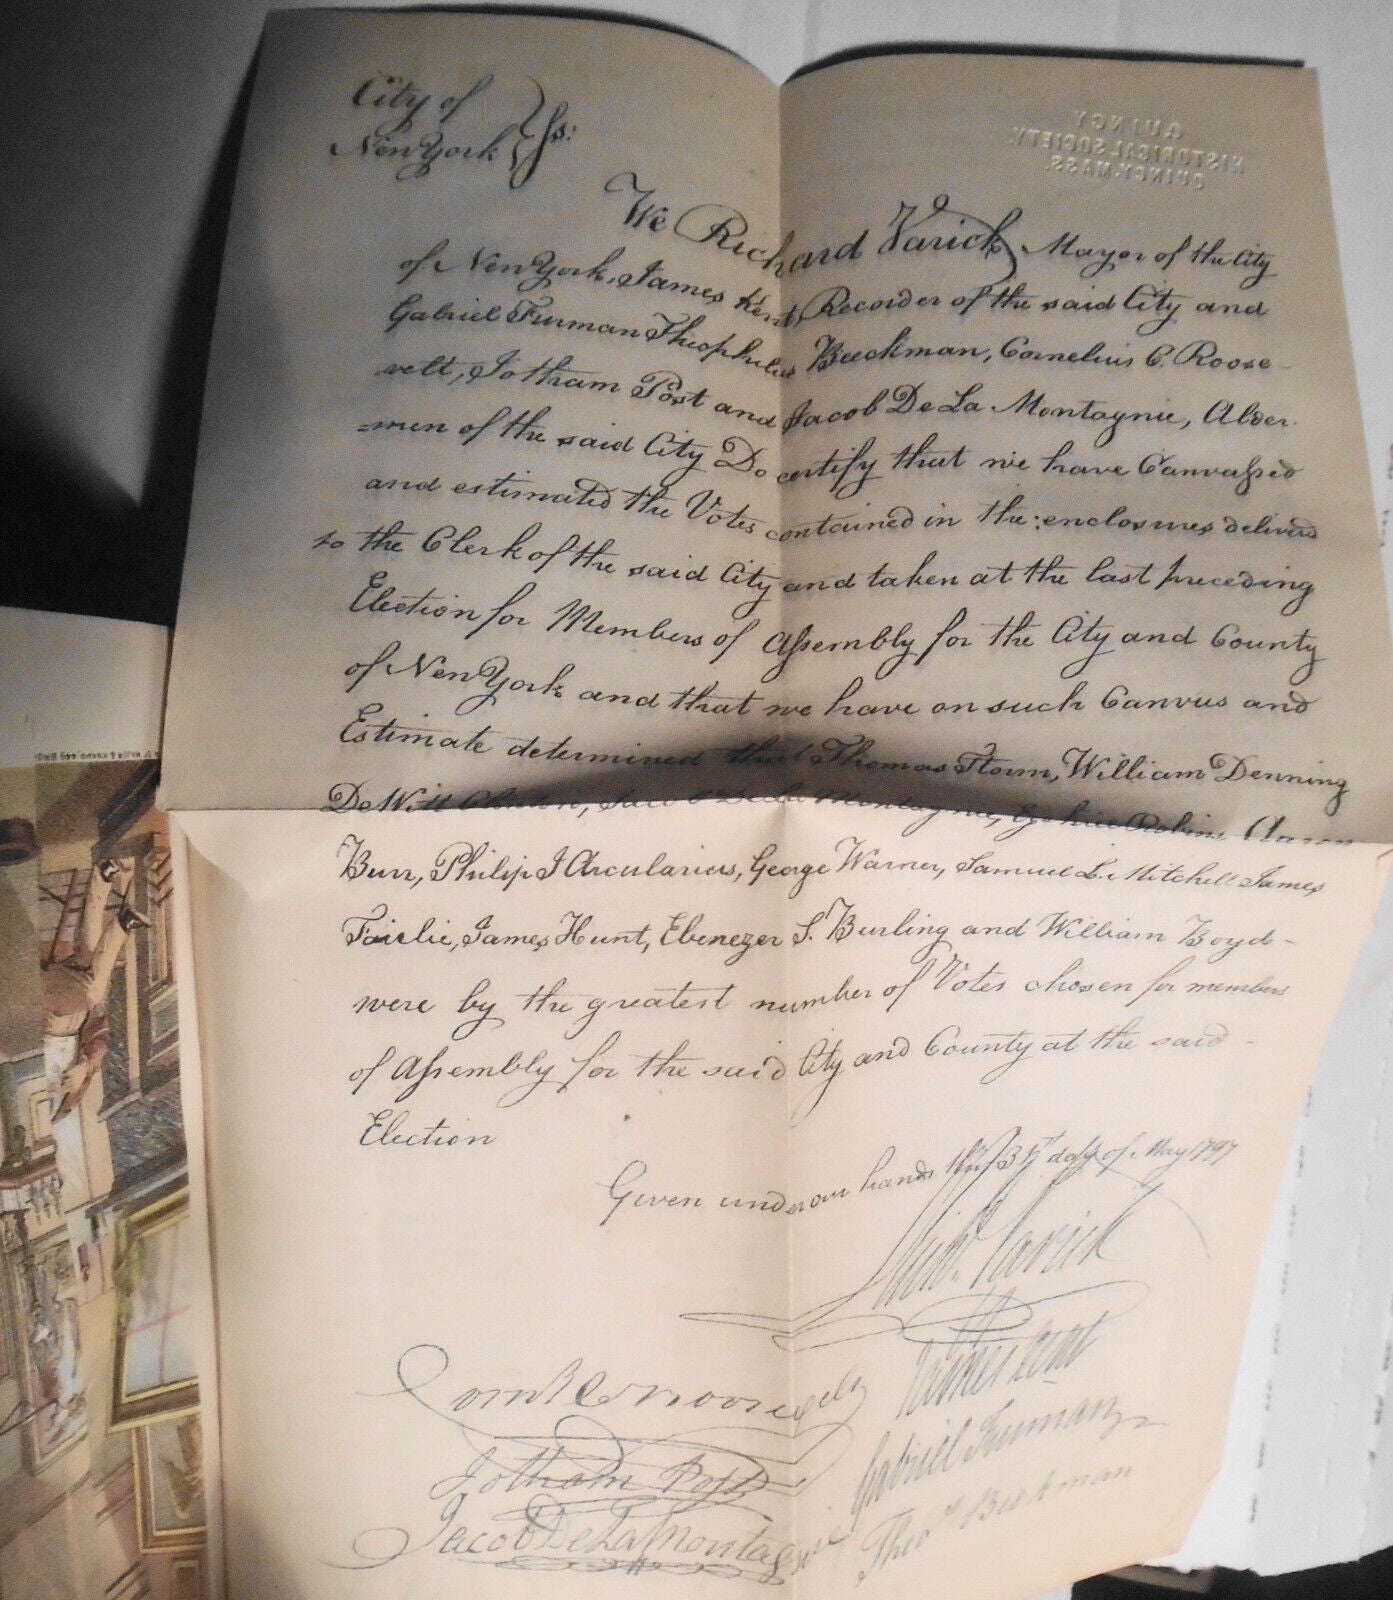 City of
New York } Ss:
QUINCY
HISTORICAL SOCIETY.
QUINCY, MASS.
We Richard Varick Mayor of the City
of New York, James Kent, Recorder of the said City and
Gabriel Furman Theophilus Beeckman, Cornelius C. Roose-
velt, Jotham Post and Jacob De La Montagnie, Alder-
=men of the said City Do certify that we have Canvassed
and estimated the Votes contained in the enclosures deliverd
to the Clerk of the said City and taken at the last preceding
Election for Members of Assembly for the City and County
of New York and that we have on such Canvus and
Estimate determined that Thomas Storm, William Denning
De Witt Clinton, Jacob De La Montagnie, Ezekiel Robins Aaron
Burr, Philip I Arcularius, George Warner, Samuel L. Mitchell James
Fairlie, James Hunt, Ebenezer S. Burling and William Boyd-
were by the greatest number of Votes chosen for members
of Assembly for the said City and County at the said -
Election
Given under our hands this 31st day of May 1797
Richd. Varick
James Kent
Corns C Roosevelt
Gabriel Furman
Jotham Post
Theos Beekman
Jacob De La Montagnie